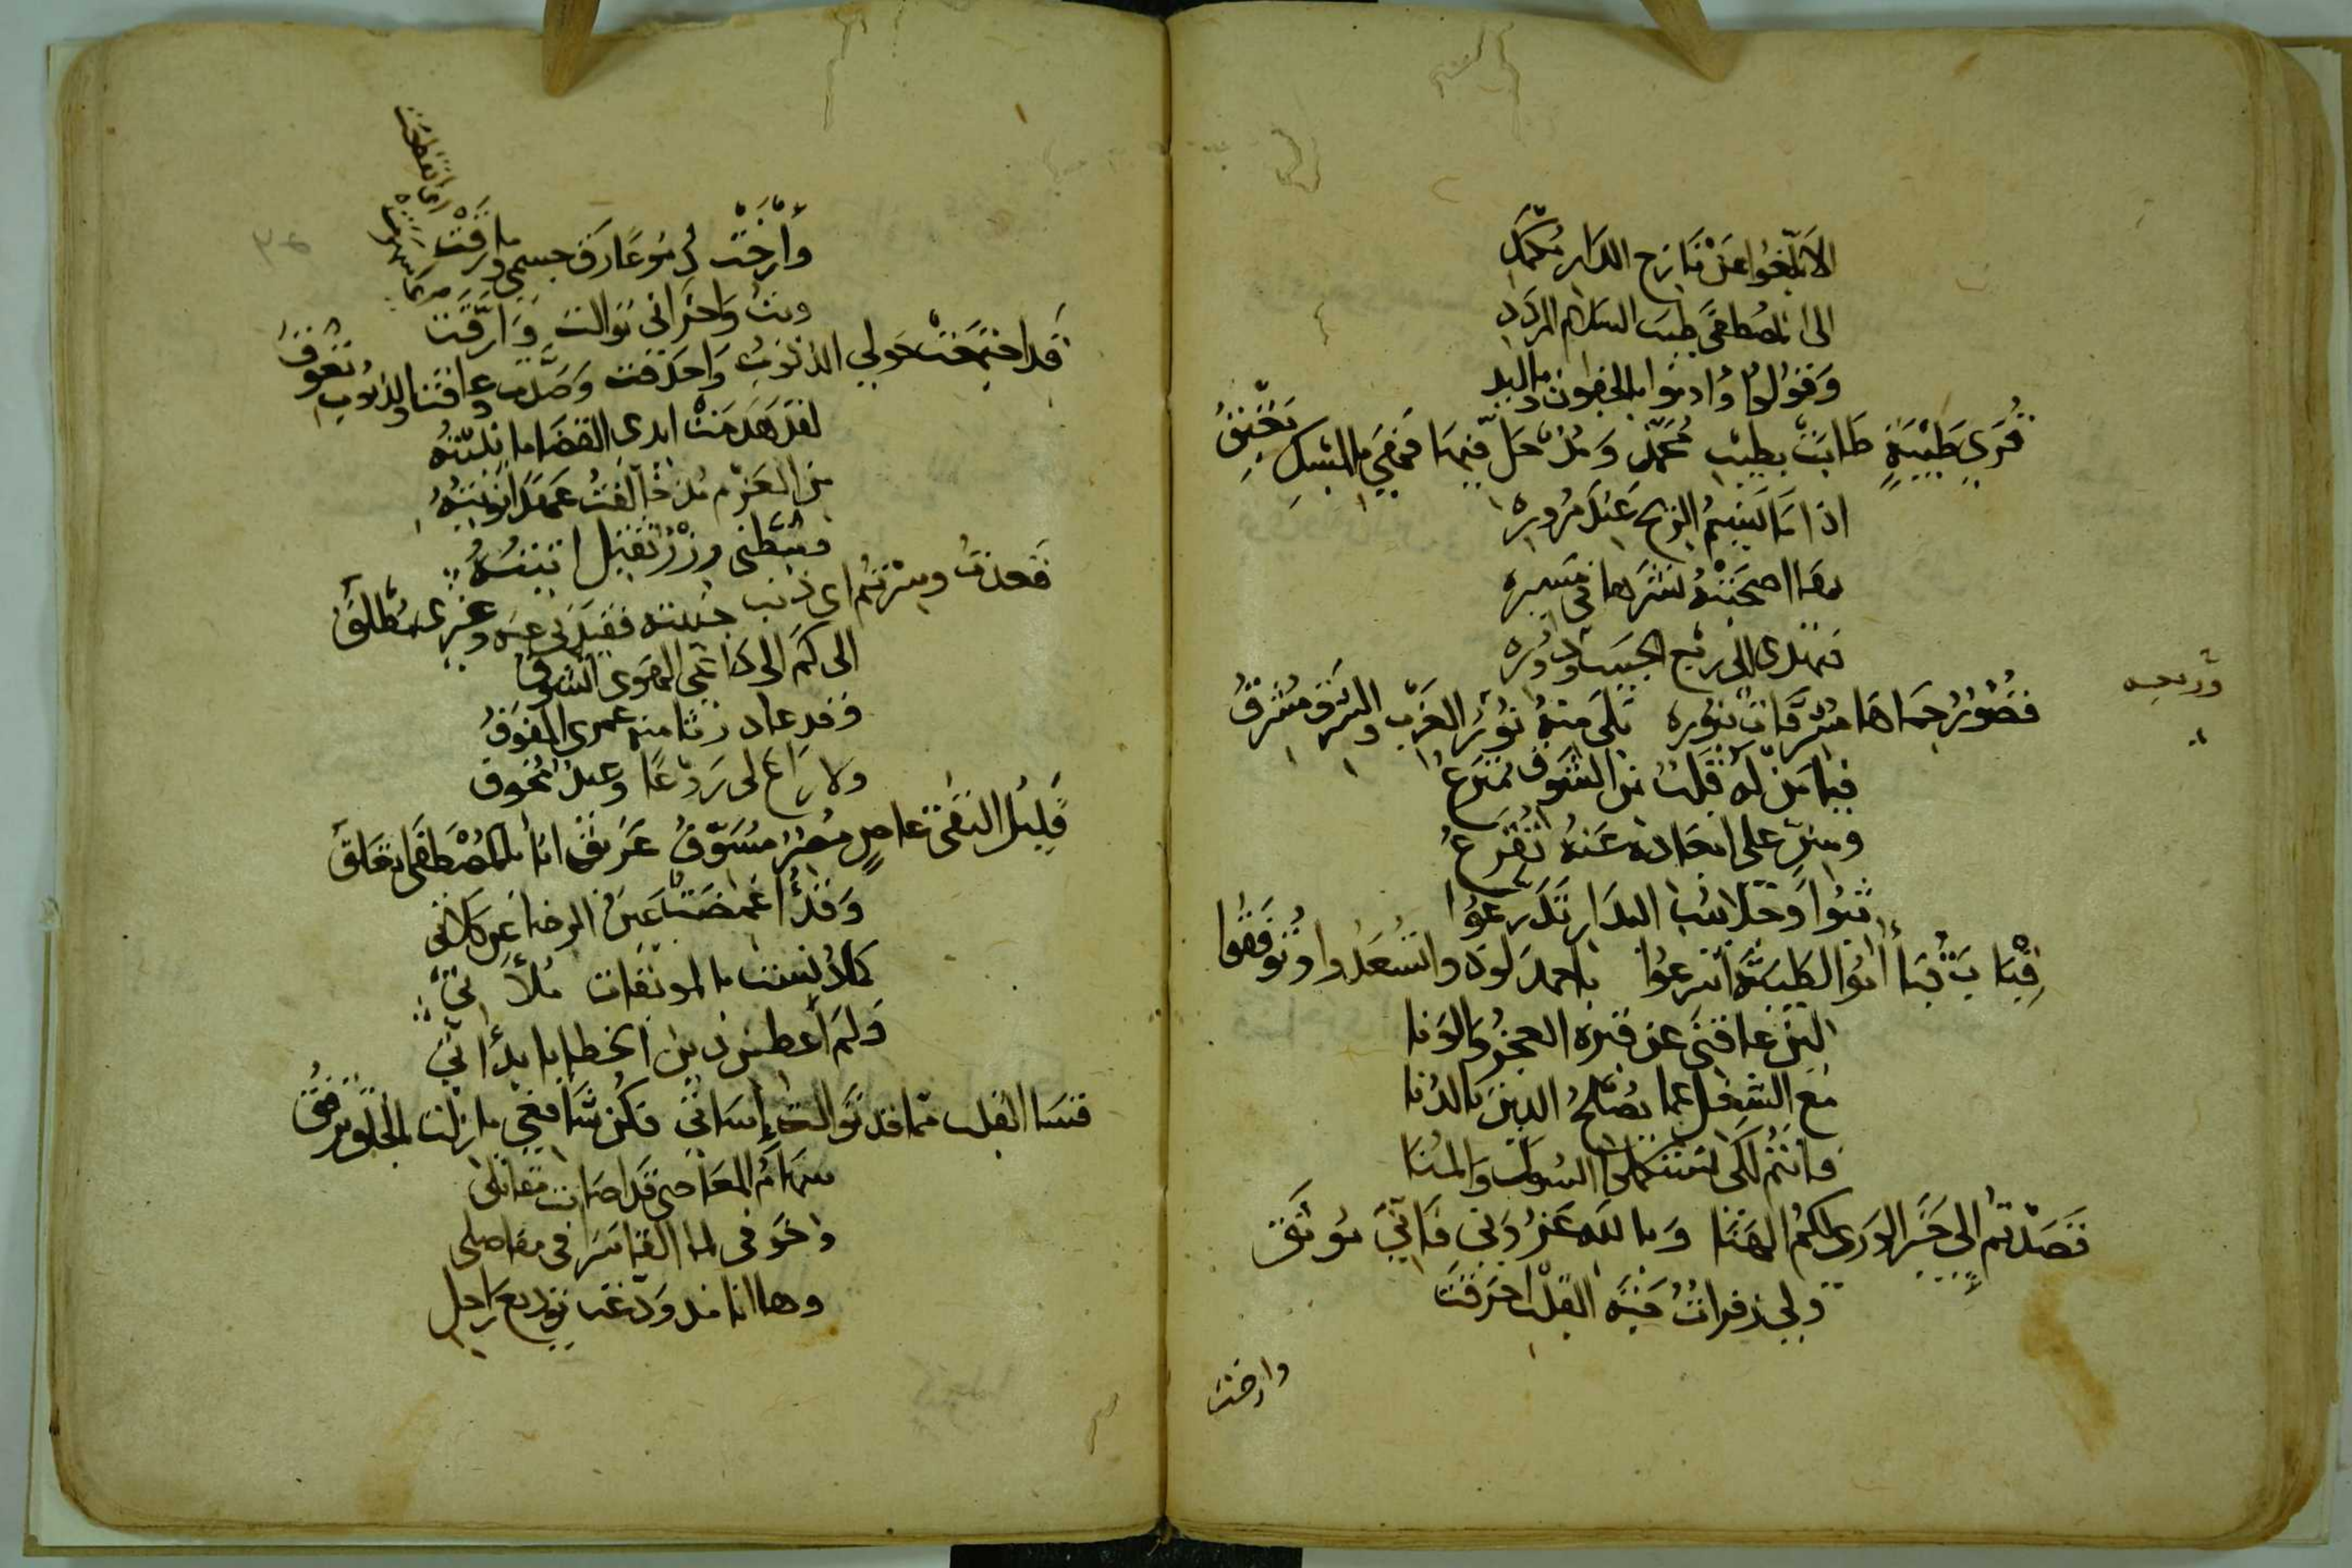 الا بلغوا عن نازح الدار مكمد
الى المصطفى طيب السلام المردد
وقولوا وادنوا بالجفون وباليد
ثرى طيبة طابت بطيب محمد ومذ حل فيها فهي بالمسك تعبق
اذا ما نسيم الريح عند مروره
بها اصحبته نشرها في مسيره
تهدى الى ربع الحبيب ودوره
وربعه
قصور حماها مشرقات بنوره تلى منه نور الغرب والشرف مشرق
فيا من له قلب من الشوق يتنزع
وسن على ابعاده عنه تقرع
ثبوا وجلابيب الدار تدرعوا
قبا يا قبا اتوا لطيبة اسرعوا باحمد لوذوا تسعدوا وتوفقوا
لئن عاقني عن قبره العجز والونا
مع الشغل عما يصلح الدين بالدنا
فانتم لكي تستكملوا السول والمنا
قصدتم الى خير الورى لكم الهنا وبالله عزوني فاني موثق
ولي زفرات حبة القلب احرقت
وارخت
وارخت دموعا رق جسمي ورقت
وبت واحزاني توالت وارقت
قد اجتمعت حولي الذنوب واحدقت وصدت وعاقتنا والذنوب تعوق
لقد هدمت ايدي القضا ما بنيته
من العزم مذ خالفت عهدا نويته
فثبطني وزر ثقيل اتيته
قعدت وسرتم اي ذنب جنيته فقيدني عنه وغيري مطلق
الى كم الى داعي الهوى اتشوق
وقد عاد رثا منه عمري المفوق
ولا راع لي ردعا وعيد مخوف
قليل التقى عاص مصر مسوف غريق انا بالمصطفى اتعلق
وقد اغمضت عين الرضا عن كلائي
كما دنست بالموبقات ملائي
ولم اعط من دين الخطايا بدائي
قسا القلب مما قد توالت اساتي فكن شافعي ما زلت بالخلق ترفق
سهام المعاصي قد اصابت مقاتلي
واخوفي لما القا سرا في مفاصلي
وها انا مذ ودعت توديع راحل